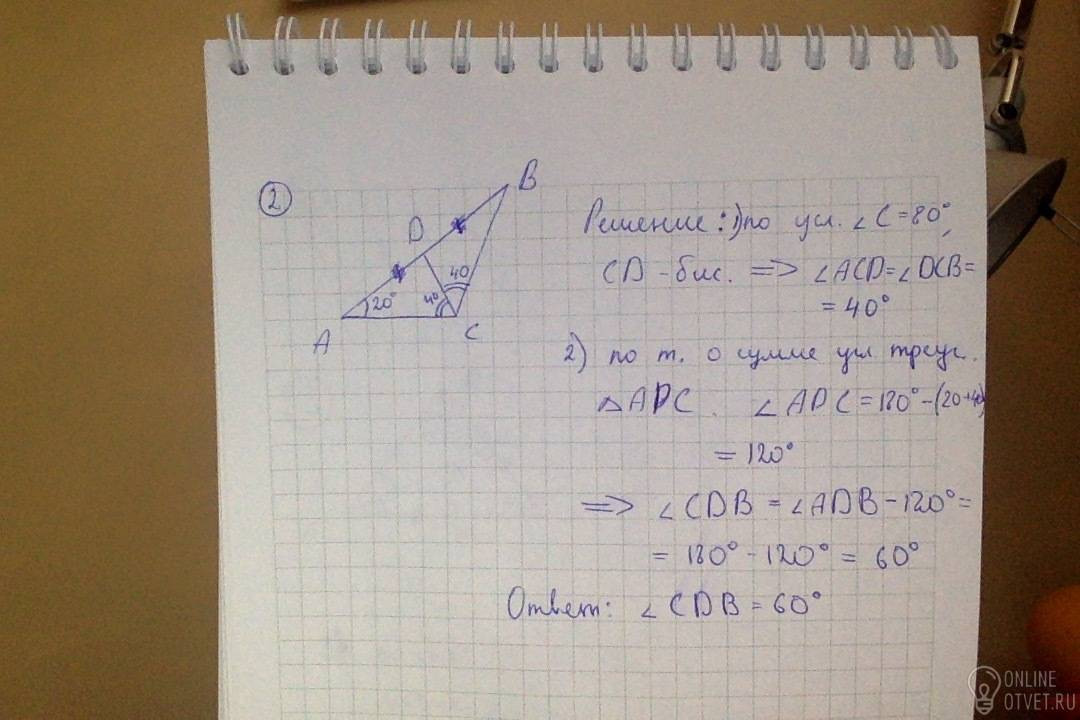 2
B
D
40
20°
40
A
C
Решение: 1) по усл. ∠C = 80°,
CD - бис. => ∠ACD = ∠DCB =
= 40°
2) по т. о сумме угл треуг.
△ADC. ∠ADC = 180° - (20+40)
= 120°
=> ∠CDB = ∠ADB - 120° =
= 180° - 120° = 60°
Ответ: ∠CDB = 60°
ONLINE
OTVET.RU